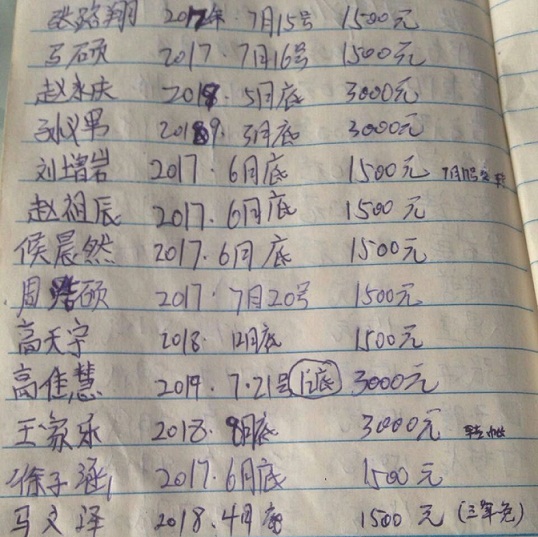 张路翔 2017年·7月15号 1500元
马硕 2017·7月16号 1500元
赵永庆 2019·5月底 3000元
孙义男 2019·3月底 3000元
刘增岩 2017·6月底 1500元 7月17号
赵祖辰 2017·6月底 1500元
侯晨然 2017·6月底 1500元
周浩硕 2017·7月20号 1500元
高天宇 2018·12月底 1500元
高佳慧 2019·7·21号 3000元
王家乐 2018·8月底 3000元
徐子涵 2017·6月底 1500元
马文泽 2018·4月底 1500元(三年免)